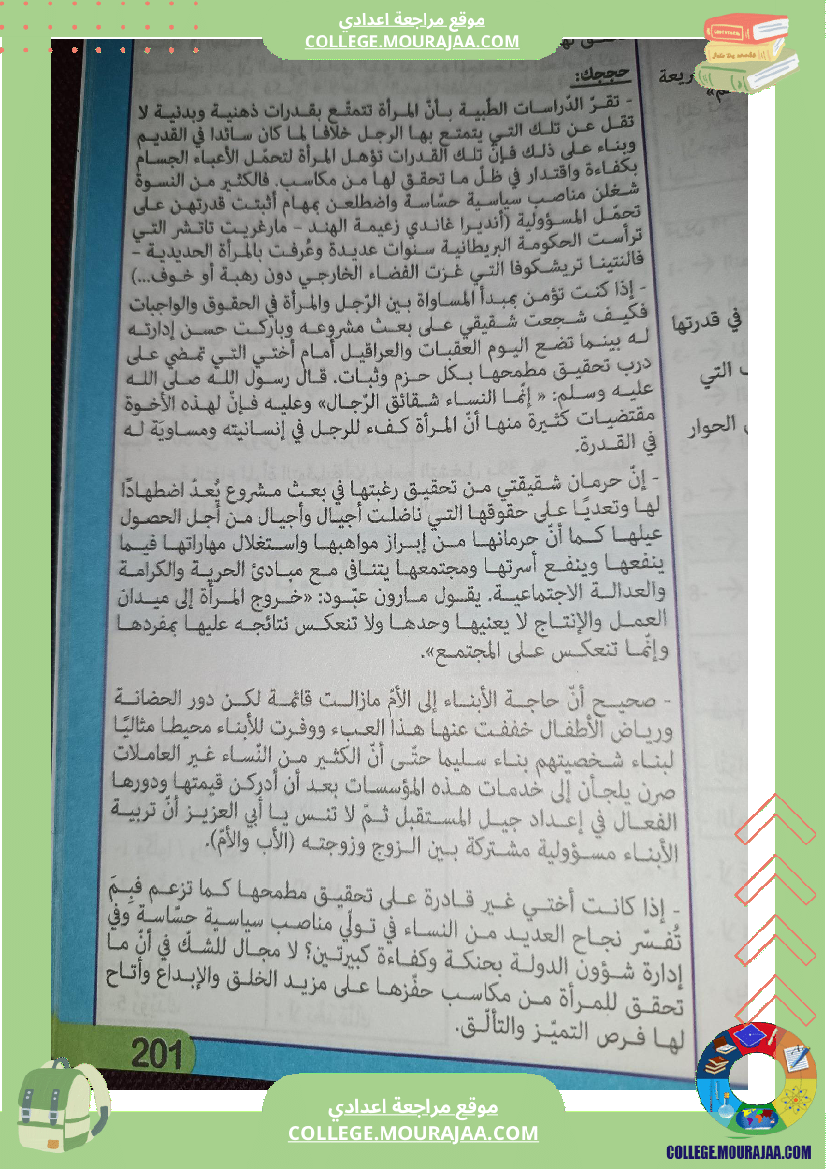 موقع مراجعة اعدادي
COLLEGE.MOURAJAA.COM
حججك:
- تقرّ الدّراسات الطّبية بأنّ المرأة تتمتّع بقدرات ذهنية وبدنية لا
تقل عن تلك التي يتمتع بها الرجل خلافا لما كان سائدا في القديم
وبناء على ذلك فإنّ تلك القدرات تؤهل المرأة لتحمّل الأعباء الجسام
بكفاءة واقتدار في ظلّ ما تحقق لها من مكاسب. فالكثير من النسوة
شغلن مناصب سياسية حسّاسة واضطلعن بمهام أثبتت قدرتهن على
تحمّل المسؤولية (أنديرا غاندي زعيمة الهند - مارغريت تاتشر التي
ترأست الحكومة البريطانية سنوات عديدة وعُرفت بالمرأة الحديدية -
فالنتينا تريشكوفا التي غزت الفضاء الخارجي دون رهبة أو خوف...)
- إذا كنت تؤمن بمبدأ المساواة بين الرّجل والمرأة في الحقوق والواجبات
فكيف شجعت شقيقي على بعث مشروعه وباركت حسن إدارته
له بينما تضع اليوم العقبات والعراقيل أمام أختي التي تمضي على
درب تحقيق مطمحها بكل حزم وثبات. قال رسول الله صلى الله
عليه وسلم: « إنّما النساء شقائق الرّجال» وعليه فإنّ لهذه الأخوة
مقتضيات كثيرة منها أنّ المرأة كفء للرجل في إنسانيته ومساوية له
في القدرة.
- إنّ حرمان شقيقتي من تحقيق رغبتها في بعث مشروع يُعدّ اضطهادًا
لها وتعديًا على حقوقها التي ناضلت أجيال وأجيال من أجل الحصول
عيلها كما أنّ حرمانها من إبراز مواهبها واستغلال مهاراتها فيما
ينفعها وينفع أسرتها ومجتمعها يتنافى مع مبادئ الحرية والكرامة
والعدالة الاجتماعية. يقول مارون عبّود: «خروج المرأة إلى ميدان
العمل والإنتاج لا يعنيها وحدها ولا تنعكس نتائجه عليها بمفردها
وإنّما تنعكس على المجتمع».
- صحيح أنّ حاجة الأبناء إلى الأمّ مازالت قائمة لكن دور الحضانة
ورياض الأطفال خففت عنها هذا العبء ووفرت للأبناء محيطا مثاليًا
لبناء شخصيتهم بناء سليما حتّى أنّ الكثير من النّساء غير العاملات
صرن يلجأن إلى خدمات هذه المؤسسات بعد أن أدركن قيمتها ودورها
الفعال في إعداد جيل المستقبل ثمّ لا تنس يا أبي العزيز أنّ تربية
الأبناء مسؤولية مشتركة بين الزوج وزوجته (الأب والأمّ).
- إذا كانت أختي غير قادرة على تحقيق مطمحها كما تزعم فبِمَ
تُفسّر نجاح العديد من النساء في تولّي مناصب سياسية حسّاسة وفي
إدارة شؤون الدولة بحنكة وكفاءة كبيرتين؟ لا مجال للشكّ في أنّ ما
تحقق للمرأة من مكاسب حفّزها على مزيد الخلق والإبداع وأتاح
لها فرص التميّز والتألّق.
في قدرتها
التي
الحوار
201
موقع مراجعة اعدادي
COLLEGE.MOURAJAA.COM
COLLEGE.MOURAJAA.COM